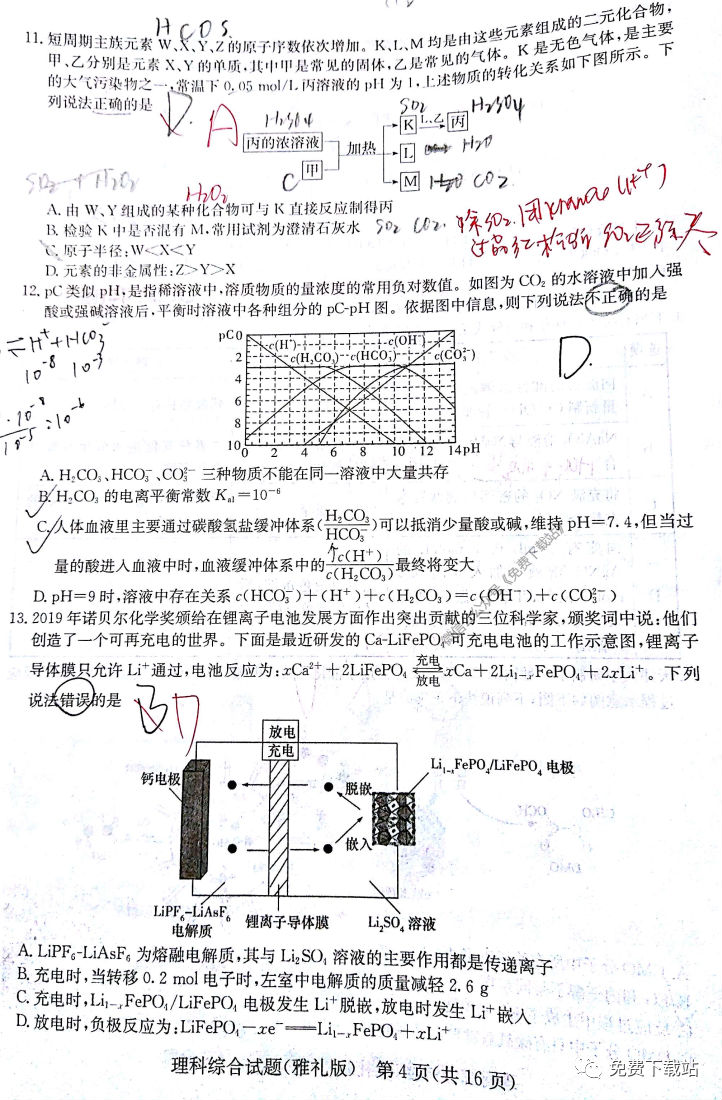 H C O S.
11. 短周期主族元素 W、X、Y、Z 的原子序数依次增加。K、L、M 均是由这些元素组成的二元化合物,
甲、乙分别是元素 X、Y 的单质,其中甲是常见的固体,乙是常见的气体。K 是无色气体,是主要
的大气污染物之一,常温下 0.05 mol/L 丙溶液的 pH 为 1,上述物质的转化关系如下图所示。下
列说法正确的是
D. A
H2SO4
SO2
H2SO4
丙的浓溶液
甲
C
加热
K
L、乙
丙
L
H2O
M
CO2
SO2 + H2O2
H2O2
A. 由 W、Y 组成的某种化合物可与 K 直接反应制得丙
B. 检验 K 中是否混有 M,常用试剂为澄清石灰水
SO2 CO2.
C. 原子半径:W<X<Y
D. 元素的非金属性:Z>Y>X
12. pC 类似 pH,是指稀溶液中,溶质物质的量浓度的常用负对数值。如图为 CO₂ 的水溶液中加入强
酸或强碱溶液后,平衡时溶液中各种组分的 pC-pH 图。依据图中信息,则下列说法不正确的是
D.
⇌H⁺+HCO₃⁻
10⁻⁸ 10⁻³
pC 0
2
4
6
8
10
c(H⁺)
c(OH⁻)
c(H₂CO₃)
c(HCO₃⁻)
c(CO₃²⁻)
0 2 4 6 8 10 12 14 pH
A. H₂CO₃、HCO₃⁻、CO₃²⁻ 三种物质不能在同一溶液中大量共存
B. H₂CO₃ 的电离平衡常数 Kₐ₁=10⁻⁶
C. 人体血液里主要通过碳酸氢盐缓冲体系(H₂CO₃/HCO₃⁻)可以抵消少量酸或碱,维持 pH=7.4,但当过
量的酸进入血液中时,血液缓冲体系中的 c(H⁺)/c(H₂CO₃) 最终将变大
D. pH=9 时,溶液中存在关系 c(HCO₃⁻)+(H⁺)+c(H₂CO₃)=c(OH⁻)+c(CO₃²⁻)
13. 2019 年诺贝尔化学奖颁给在锂离子电池发展方面作出突出贡献的三位科学家,颁奖词中说:他们
创造了一个可再充电的世界。下面是最近研发的 Ca-LiFePO₄ 可充电电池的工作示意图,锂离子
导体膜只允许 Li⁺通过,电池反应为:xCa²⁺+2LiFePO₄ 充电⇌放电 xCa+2Li₁₋ₓFePO₄+2xLi⁺。下列
说法错误的是
B D
放电
充电
钙电极
脱嵌
嵌入
Li₁₋ₓFePO₄/LiFePO₄ 电极
LiPF₆-LiAsF₆
电解质
锂离子导体膜
Li₂SO₄ 溶液
A. LiPF₆-LiAsF₆ 为熔融电解质,其与 Li₂SO₄ 溶液的主要作用都是传递离子
B. 充电时,当转移 0.2 mol 电子时,左室中电解质的质量减轻 2.6 g
C. 充电时,Li₁₋ₓFePO₄/LiFePO₄ 电极发生 Li⁺脱嵌,放电时发生 Li⁺嵌入
D. 放电时,负极反应为:LiFePO₄−xe⁻══Li₁₋ₓFePO₄+xLi⁺
理科综合试题(雅礼版) 第 4 页(共 16 页)
免费下载站